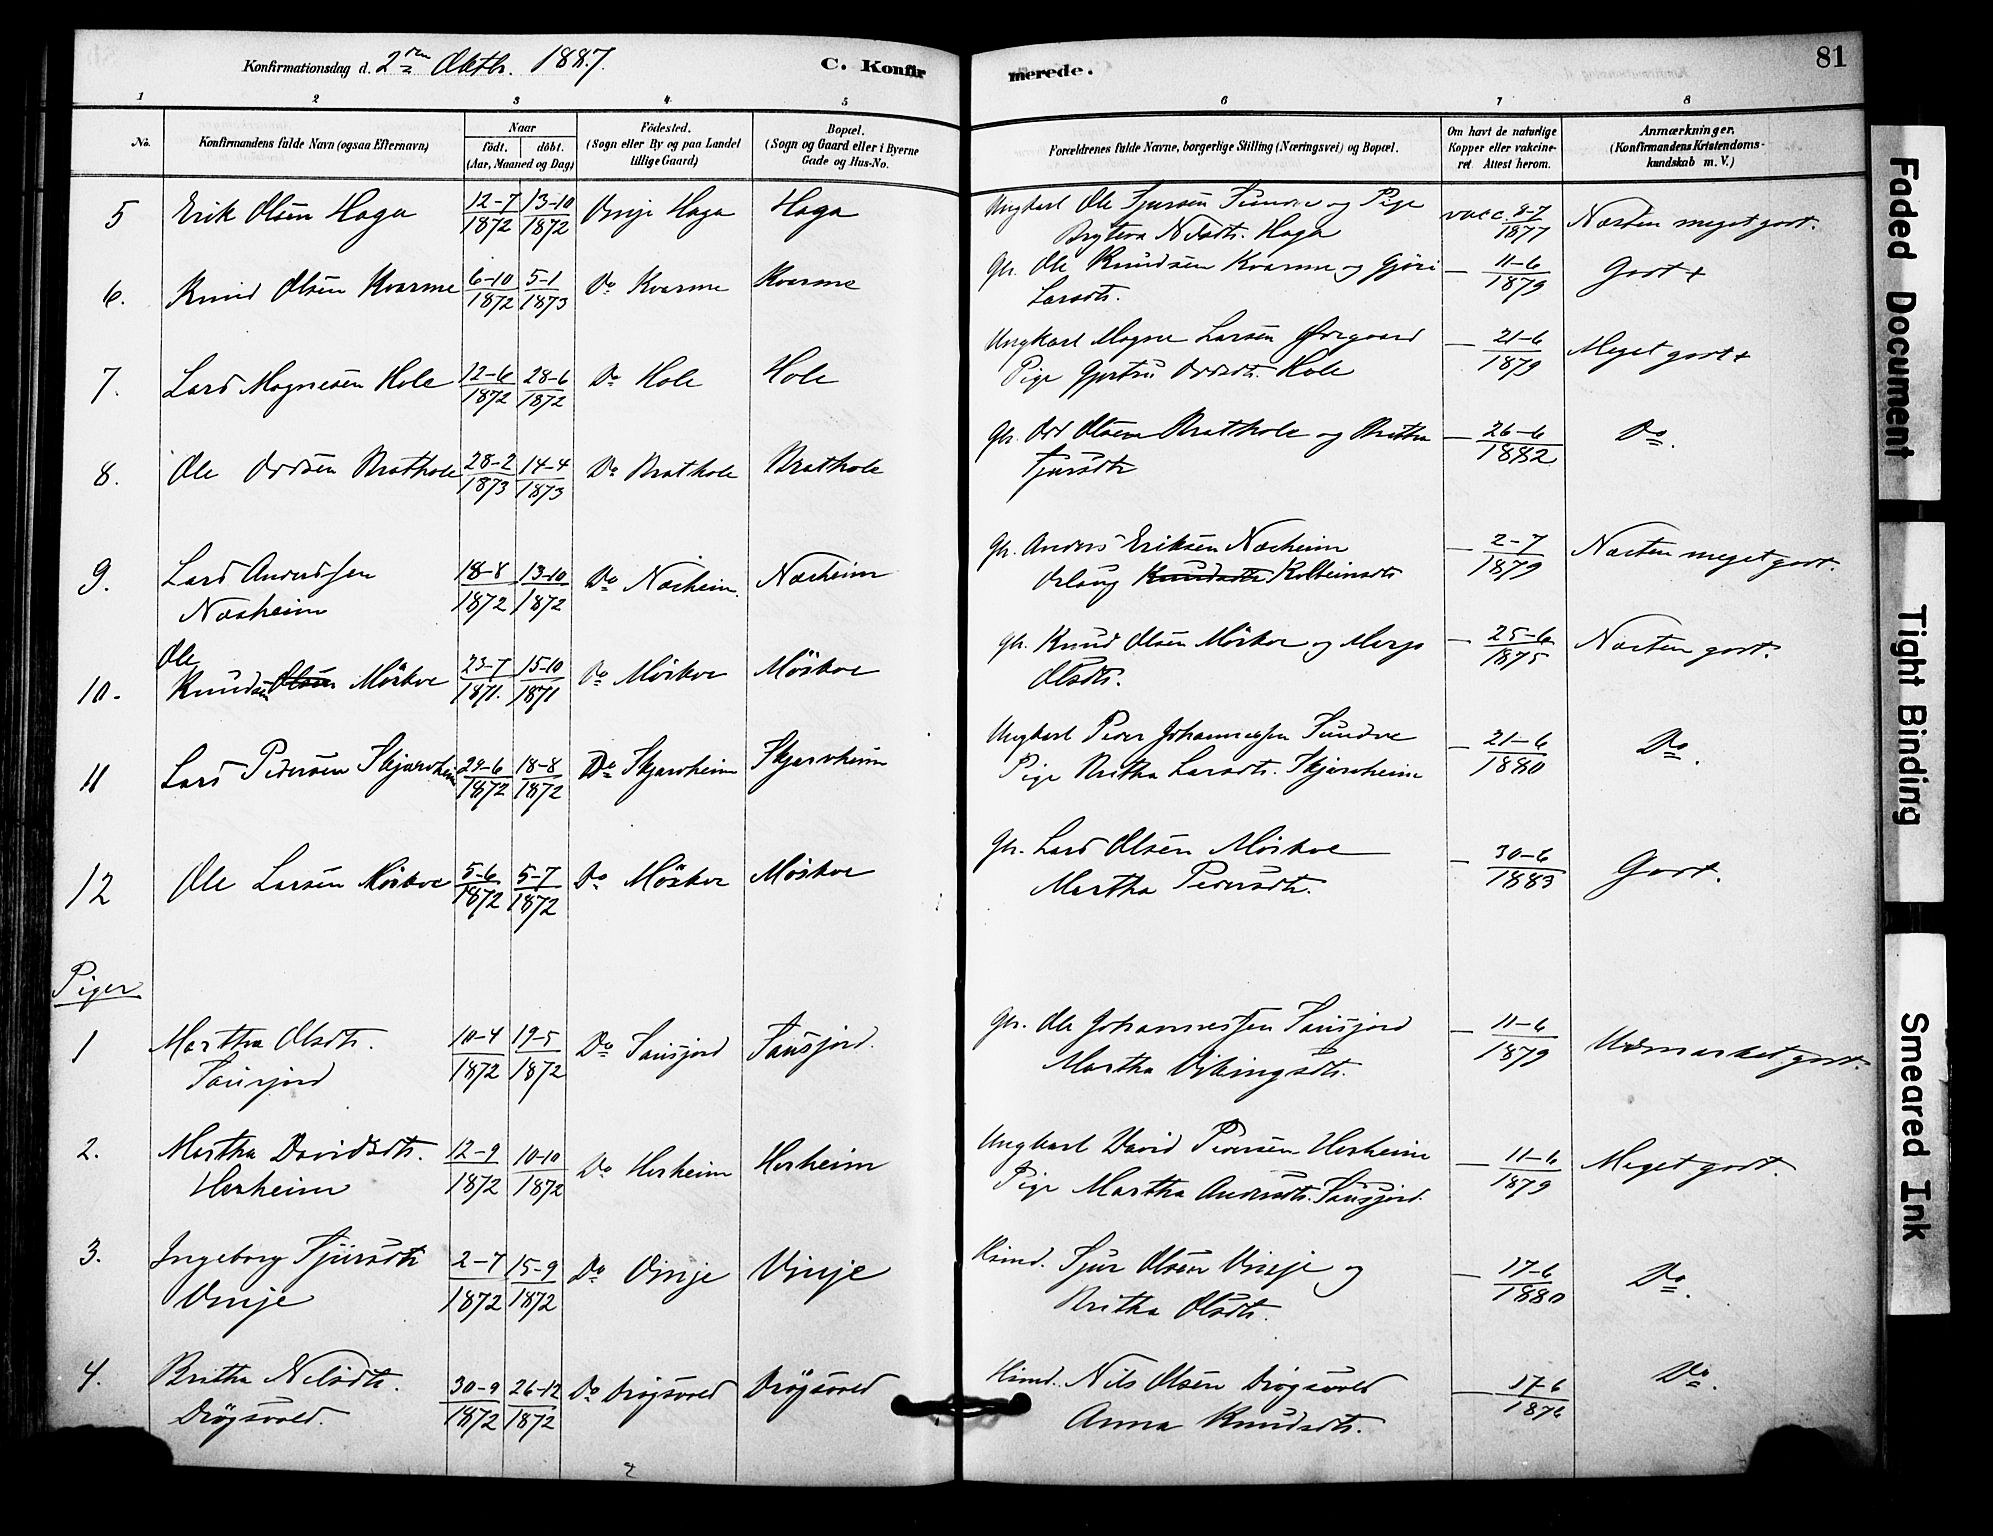 Konfirmationsdag d. 2den Oktbr. 1887.
C. Konfirmerede.
81
1 2 3 4 5 6 7 8
No.
Konfirmandens fulde Navn (ogsaa Efternavn)
Naar
födt. döbt.
(Aar, Maaned og Dag)
Födested.
(Sogn eller By og paa Landet
tillige Gaard)
Bopæl.
(Sogn og Gaard eller i Byerne
Gade og Hus-No.
Forældrenes fulde Navne, borgerlige Stilling (Næringsvei) og Bopæl.
Om havt de naturlige
Kopper eller vakcine-
ret. Attest herom.
Anmærkninger.
(Konfirmandens Kristendoms-
kundskab m. V.)
5 Erik Olsen Haga 12-7 1872 13-10 1872 Vinje Haga Haga Ungkarl Ole Sjursen Sundve og Pige
Bryteva Nilsdtr. Haga vacc. 9-7 1877 Næsten meget godt.
6. Knud Olsen Kvarme 6-10 1872 5-1 1873 Do Kvarme Kvarme Gb. Ole Knudsen Kvarme og Gjøri
Larsdtr. — 11-6 1879 Godt +
7. Lars Magnesen Hole 12-6 1872 28-6 1872 Do Hole Hole Ungkarl Magne Larsen Øvregaard
Pige Gjertru Oddsdtr. Hole — 21-6 1879 Meget godt +
8. Ole Oddsen Brathole 28-2 1873 14-4 1873 Do Brathole Brathole Gb. Odd Olsen Brathole og Britha
Sjursdtr — 26-6 1882 Do.
9. Lars Anderssen
Næsheim 18-8 1872 13-10 1872 Do Næsheim. Næsheim Gb. Anders Eriksen Næsheim
Orlaug Knudsdtr Kolbeinsdtr — 2-7 1879 Næsten meget godt.
10. Ole
Knudsen Olsen Mörkve 23-7 1871. 15-10 1871 Do Mörkve Mörkve Gb. Knud Olsen Mörkve og Marjo
Olsdtr. — 25-6 1875 Næsten godt.
11 Lars Pedersen Skjervheim 29-6 1872 18-8 1872 Do Skjervheim Skjervheim Ungkarl Peder Johannessen Sundve
Pige Britha Larsdtr. Skjervheim — 21-6 1880 Do.
12 Ole Larsen Mörkve 5-6 1872 5-7 1872 Do Mörkve Mörkve Gb. Lars Olsen Mörkve
Martha Pedersdtr. — 30-6 1883 Godt.
Piger
1 Martha Olsdtr.
Sausjord 10-4 1872 19-5 1872 Do Sausjord Sausjord. Gb. Ole Johannessen Sausjord
Martha Vikingsdtr. — 11-6 1879 Udmærket godt.
2. Martha Davidsdtr.
Herheim 12-9 1872 10-10 1872 Do Herheim Herheim Ungkarl David Pedersen Herheim
Pige Martha Andersdtr. Sausjord. — 11-6 1879 Meget godt.
3. Ingeborg Sjursdtr
Vinje 2-7 1872 15-9 1872 Do Vinje Vinje Husmd. Sjur Olsen Vinje og
Britha Olsdtr. — 17-6 1880 Do.
4. Britha Nilsdtr.
Drögsvold. 30-9 1872 26-12 1872 Do Drögsvold Drögsvold Husmd. Nils Olsen Drögsvold
Anna Knudsdtr. — 17-6 1876 Do.
Faded Document
Tight Binding
Smeared Ink